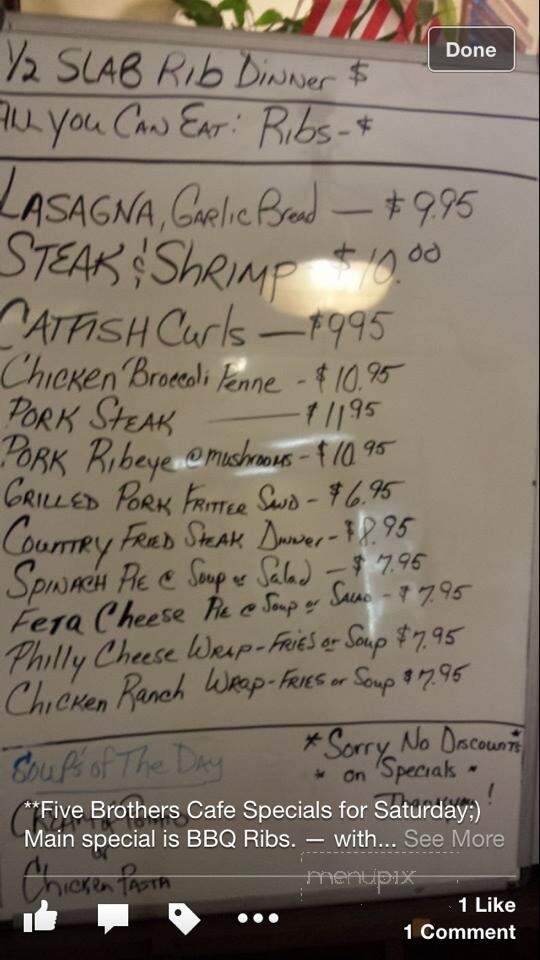 Done
1/2 SLAB Rib Dinner $
ALL YOU CAN EAT: Ribs-$
LASAGNA, Garlic Bread — $9.95
STEAK & Shrimp $10.00
CATFISH Curls — $9.95
Chicken Broccoli Penne - $10.95
PORK STEAK — $11.95
PORK Ribeye @ mushrooms - $10.95
GRILLED PORK FRITTER SAND - $6.95
COUNTRY FRIED STEAK Dinner - $8.95
SPINACH PIE @ Soup or Salad — $7.95
FETA Cheese PIE @ Soup or Salad - $7.95
Philly Cheese WRAP-FRIES or Soup $7.95
Chicken Ranch WRAP-FRIES or Soup $7.95
Soup's of The Day
* Sorry No Discounts
* on Specials *
Thank you!
Cream of Potato
or
Chicken PASTA
**Five Brothers Cafe Specials for Saturday;)
Main special is BBQ Ribs. — with... See More
menupix
1 Like
1 Comment